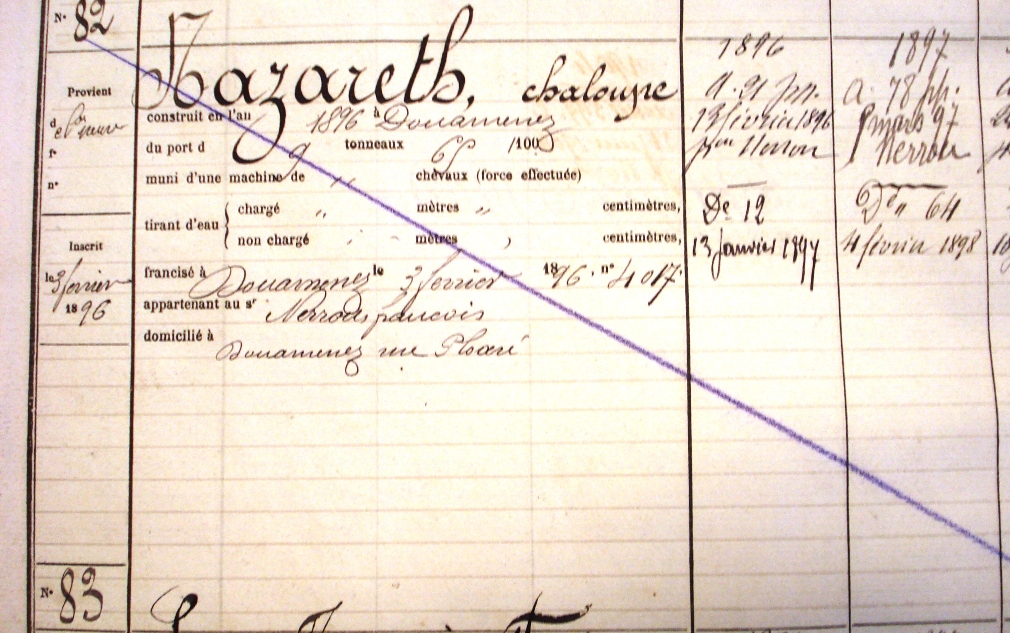 N° 82
Nazareth, chaloupe
Provient
d
f°
n°
construit en l'an 1896 à Douarnenez
du port d 9 tonneaux 65 /100
muni d'une machine de " chevaux (force effectuée)
tirant d'eau { chargé " mètres " centimètres,
non chargé mètres , centimètres,
Inscrit
le 3 février
1896
francisé à Douarnenez le 3 février 1896. n° 4017.
appartenant au sr françois
domicilié à
Douarnenez rue Ploaré
1896
13 février 1896
De 12
13 Janvier 1897
1897
a. 78
mars 97
64
4 février 1898
N° 83